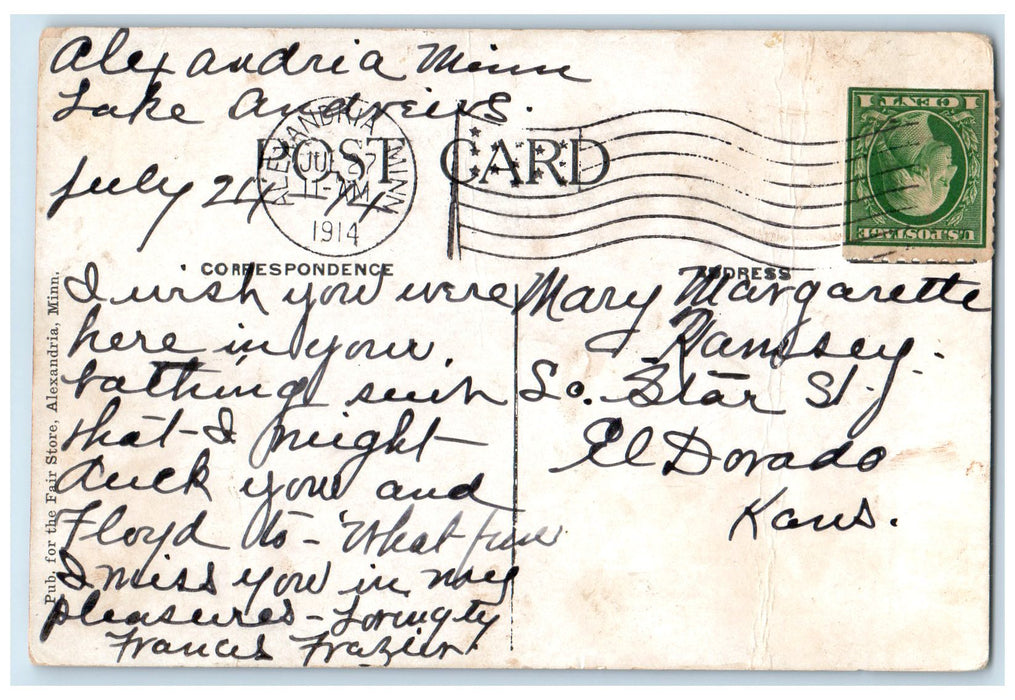 Alexandria Minn
Lake Andrews.
July 24 - 14
ALEXANDRIA MINN
JUL 27
11-AM
1914
POST CARD
1 CENT 1
U.S. POSTAGE
CORRESPONDENCE
ADDRESS
Pub. for the Fair Store, Alexandria, Minn.
I wish you were
here in your
bathing suit
that - I might
duck you and
Floyd to - What fun
I miss you in my
pleasures - Lovingly
Frances Frazier.
Mary Margarette
Ramsey.
So. Star St.
El Dorado
Kans.